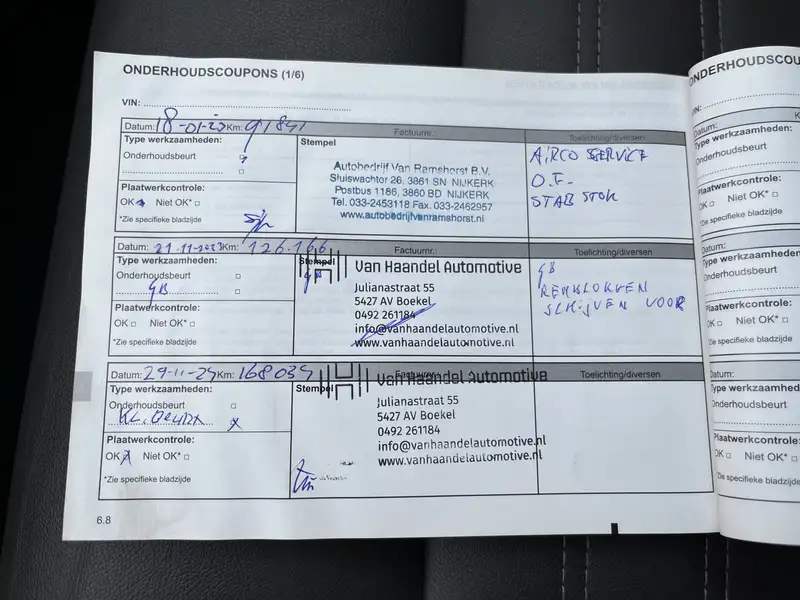 ONDERHOUDSCOUPONS (1/6)
VIN:
Datum: 18-01-23 Km: 91841 Factuurnr.: Toelichting/diversen
Type werkzaamheden: Stempel
Onderhoudsbeurt
Plaatwerkcontrole:
OK Niet OK*
*Zie specifieke bladzijde
Autobedrijf Van Ramshorst B.V.
Sluiswachter 26, 3861 SN NIJKERK
Postbus 1186, 3860 BD NIJKERK
Tel. 033-2453118 Fax. 033-2462957
www.autobedrijfvanramshorst.nl
AIRCO SERVICE
O.F.
STAB STOK
Datum: 21-11-2023 Km: 126.166 Factuurnr.: Toelichting/diversen
Type werkzaamheden: Stempel
Onderhoudsbeurt
GB
Plaatwerkcontrole:
OK Niet OK*
*Zie specifieke bladzijde
GB
Van Haandel Automotive
Julianastraat 55
5427 AV Boekel
0492 261184
info@vanhaandelautomotive.nl
www.vanhaandelautomotive.nl
GB
REMBLOKKEN
SCHIJVEN VOOR
Datum: 29-11-24 Km: 168035 Factuurnr.: Toelichting/diversen
Type werkzaamheden: Stempel
Onderhoudsbeurt
KL. Beurt x
Plaatwerkcontrole:
OK Niet OK*
*Zie specifieke bladzijde
Van Haandel Automotive
Julianastraat 55
5427 AV Boekel
0492 261184
info@vanhaandelautomotive.nl
www.vanhaandelautomotive.nl
6.8
ONDERHOUDSCOU
VIN:
Datum:
Type werkzaamheden:
Onderhoudsbeurt
Plaatwerkcontrole:
OK Niet OK*
*Zie specifieke bladzijde
Datum:
Type werkzaamheden:
Onderhoudsbeurt
Plaatwerkcontrole:
OK Niet OK*
*Zie specifieke bladzijde
Datum:
Type werkzaamheden:
Onderhoudsbeurt
Plaatwerkcontrole:
OK Niet OK*
*Zie specifieke bladzijde